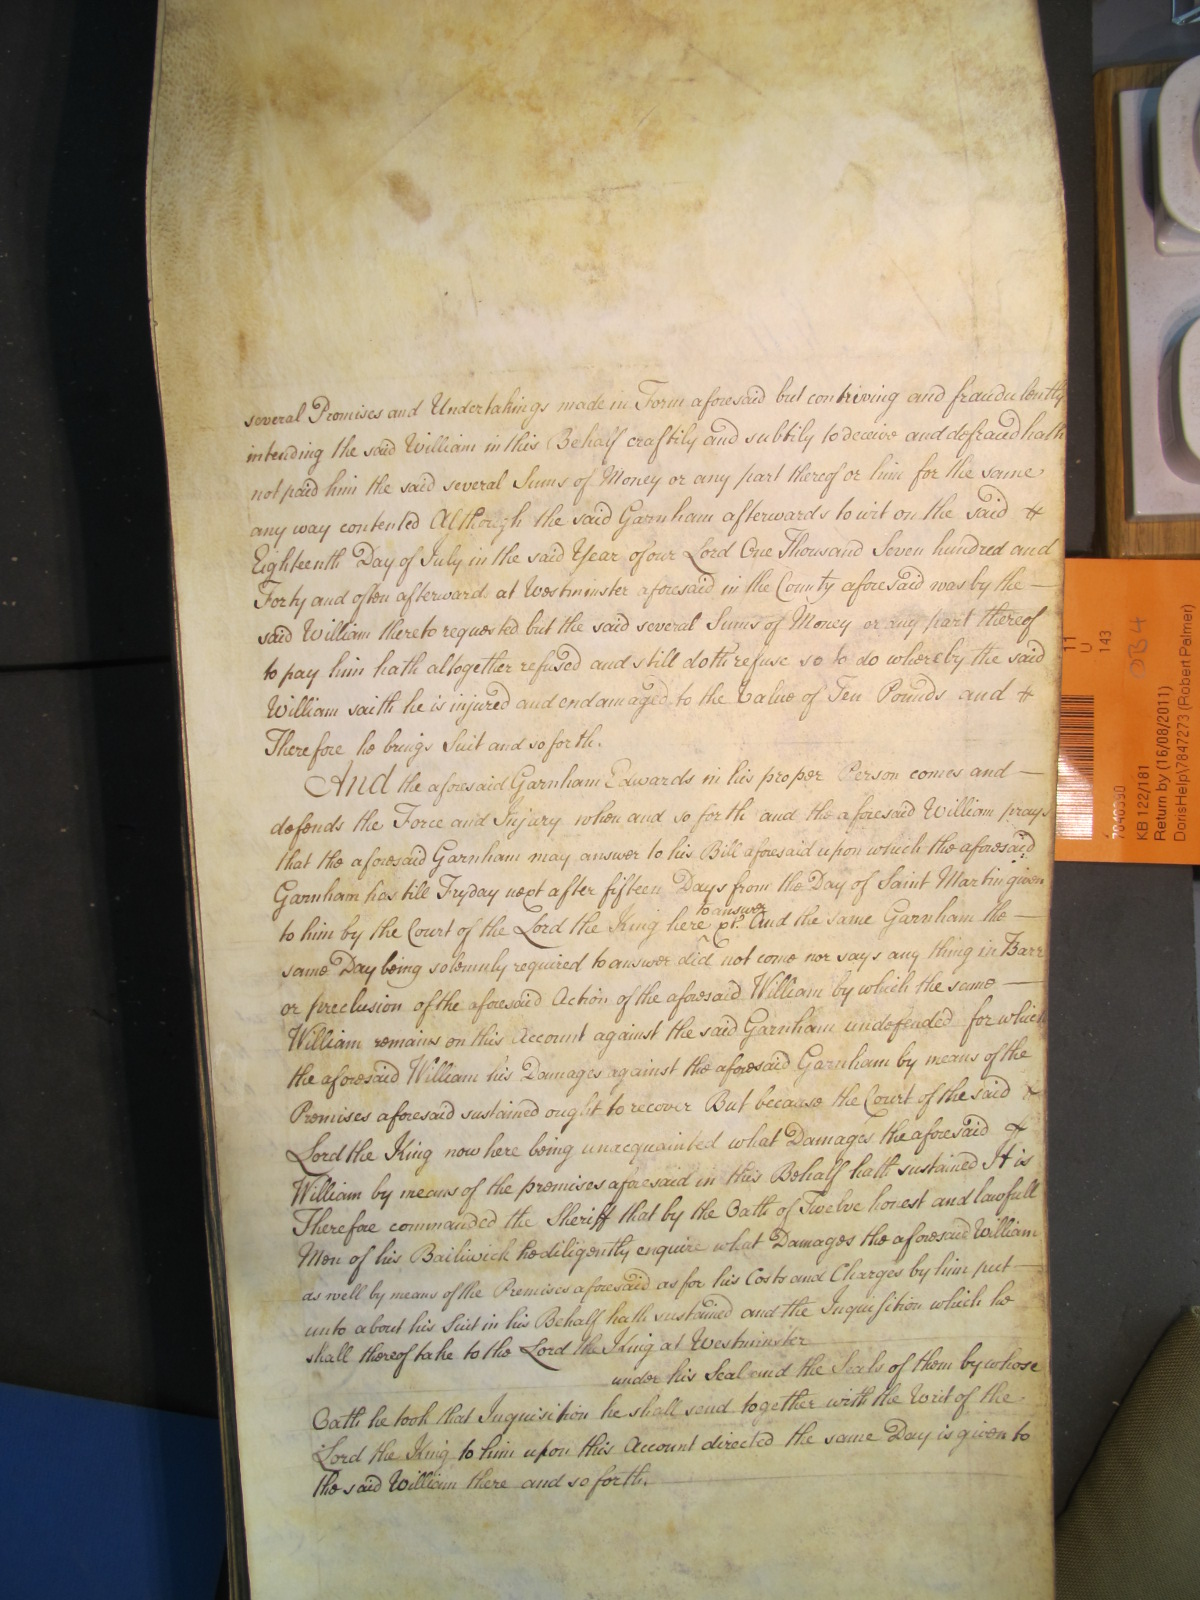 several Promises and Undertakings made in Form aforesaid but contriving and fraudulently
intending the said William in this Behalf craftily and subtily to deceive and defraud hath
not paid him the said several Sums of Money or any part thereof or him for the same
any way contented Although the said Garnham afterwards to wit on the said
Eighteenth Day of July in the said Year of our Lord One Thousand Seven hundred and
Forty and often afterwards at Westminster aforesaid in the County aforesaid was by the —
said William thereto requested but the said several Sums of Money or any part thereof
to pay him hath altogether refused and still doth refuse so to do whereby the said
William saith he is injured and endamaged to the Value of Ten Pounds and
Therefore he brings Suit and so forth.
And the aforesaid Garnham Edwards in his proper Person comes and —
defends the Force and Injury when and so forth and the aforesaid William prays
that the aforesaid Garnham may answer to his Bill aforesaid upon which the aforesaid
Garnham has till Fryday next after fifteen Days from the Day of Saint Martin given
to answer
to him by the Court of the Lord the King here And the same Garnham the —
same Day being solemnly required to answer did not come nor says any thing in Barr
or preclusion of the aforesaid Action of the aforesaid William by which the same —
William remains on this Account against the said Garnham undefended for which
the aforesaid William his Damages against the aforesaid Garnham by means of the
Premises aforesaid sustained ought to recover But because the Court of the said
Lord the King now here being unacquainted what Damages the aforesaid
William by means of the premises aforesaid in this Behalf hath sustained It is
Therefore commanded the Sheriff that by the Oath of Twelve honest and lawfull
Men of his Bailiwick he diligently enquire what Damages the aforesaid William
as well by means of the Premises aforesaid as for his Costs and Charges by him put —
unto about his Suit in his Behalf hath sustained and the Inquisition which he
shall thereof take to the Lord the King at Westminster
under his Seal and the Seals of them by whose
Oath he took that Inquisition he shall send together with the Writ of the
Lord the King to him upon this Account directed the same Day is given to
the said William there and so forth.
11
U
143
OB4
KB 122/181
Return by (16/08/2011)
DorisHelp\7847273 (Robert Palmer)